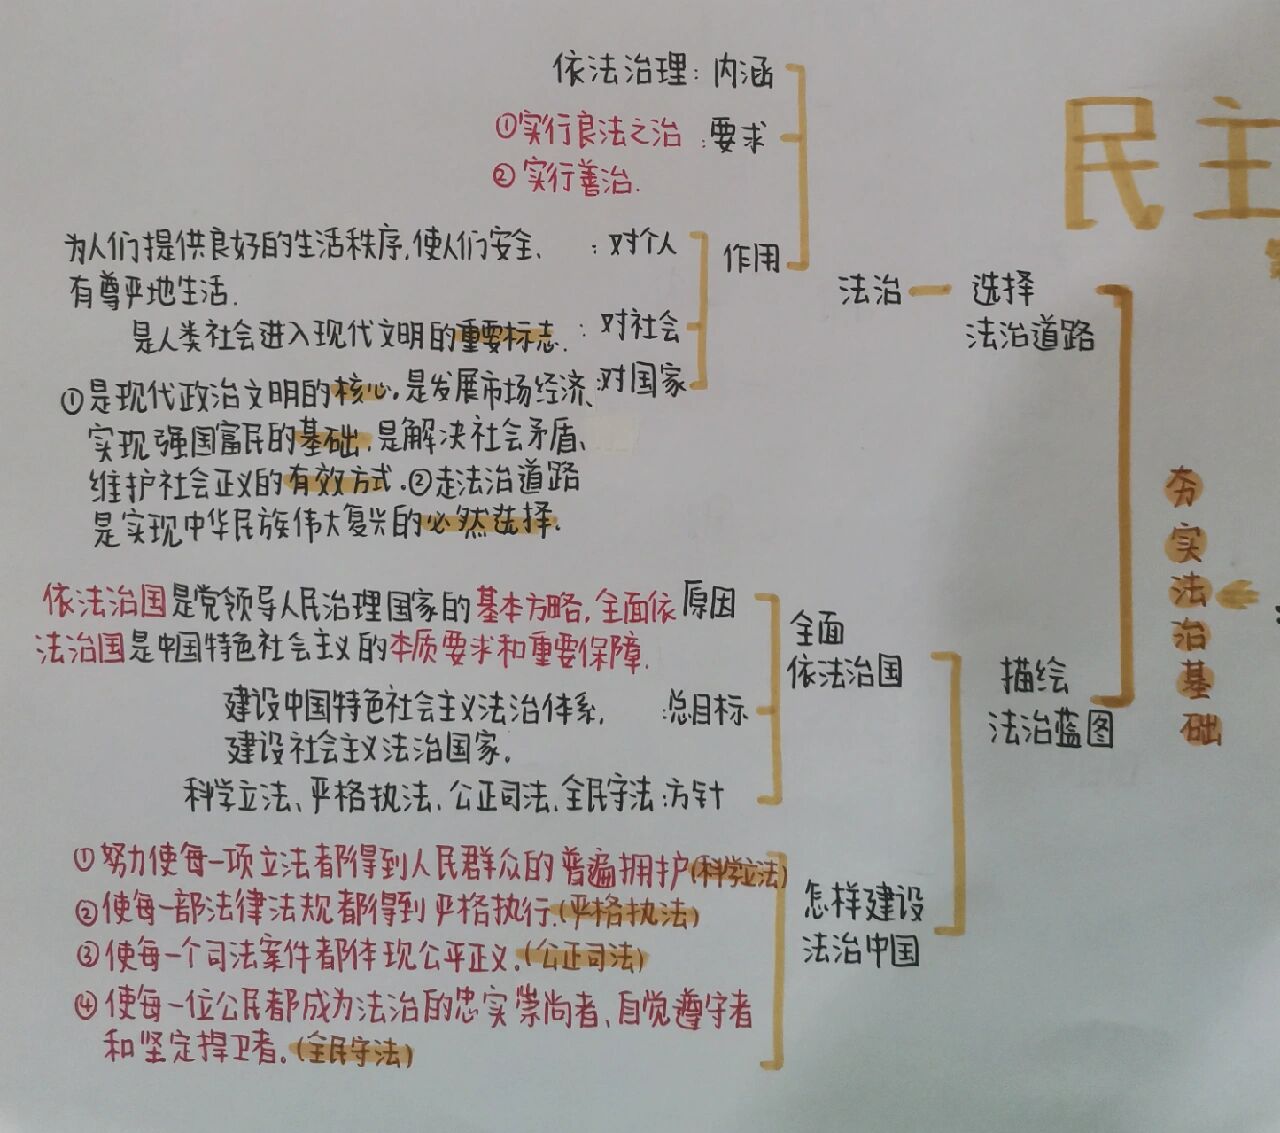 依法治理：内涵
①实行良法之治：要求
②实行善治.
民主
为人们提供良好的生活秩序,使人们安全、：对个人
有尊严地生活.
作用
法治—选择
法治道路
是人类社会进入现代文明的重要标志.：对社会
①是现代政治文明的核心.是发展市场经济、:对国家
实现强国富民的基础,是解决社会矛盾、
维护社会正义的有效方式.②走法治道路
是实现中华民族伟大复兴的必然选择.
夯实法治基础
依法治国是党领导人民治理国家的基本方略,全面依 原因
法治国是中国特色社会主义的本质要求和重要保障.
全面
依法治国
描绘
法治蓝图
建设中国特色社会主义法治体系, :总目标
建设社会主义法治国家.
科学立法、严格执法、公正司法、全民守法:方针
①努力使每一项立法都得到人民群众的普遍拥护(科学立法)
②使每一部法律法规都得到严格执行.(严格执法)
③使每一个司法案件都体现公平正义.(公正司法)
④使每一位公民都成为法治的忠实崇尚者、自觉遵守者
和坚定捍卫者.(全民守法)
怎样建设
法治中国